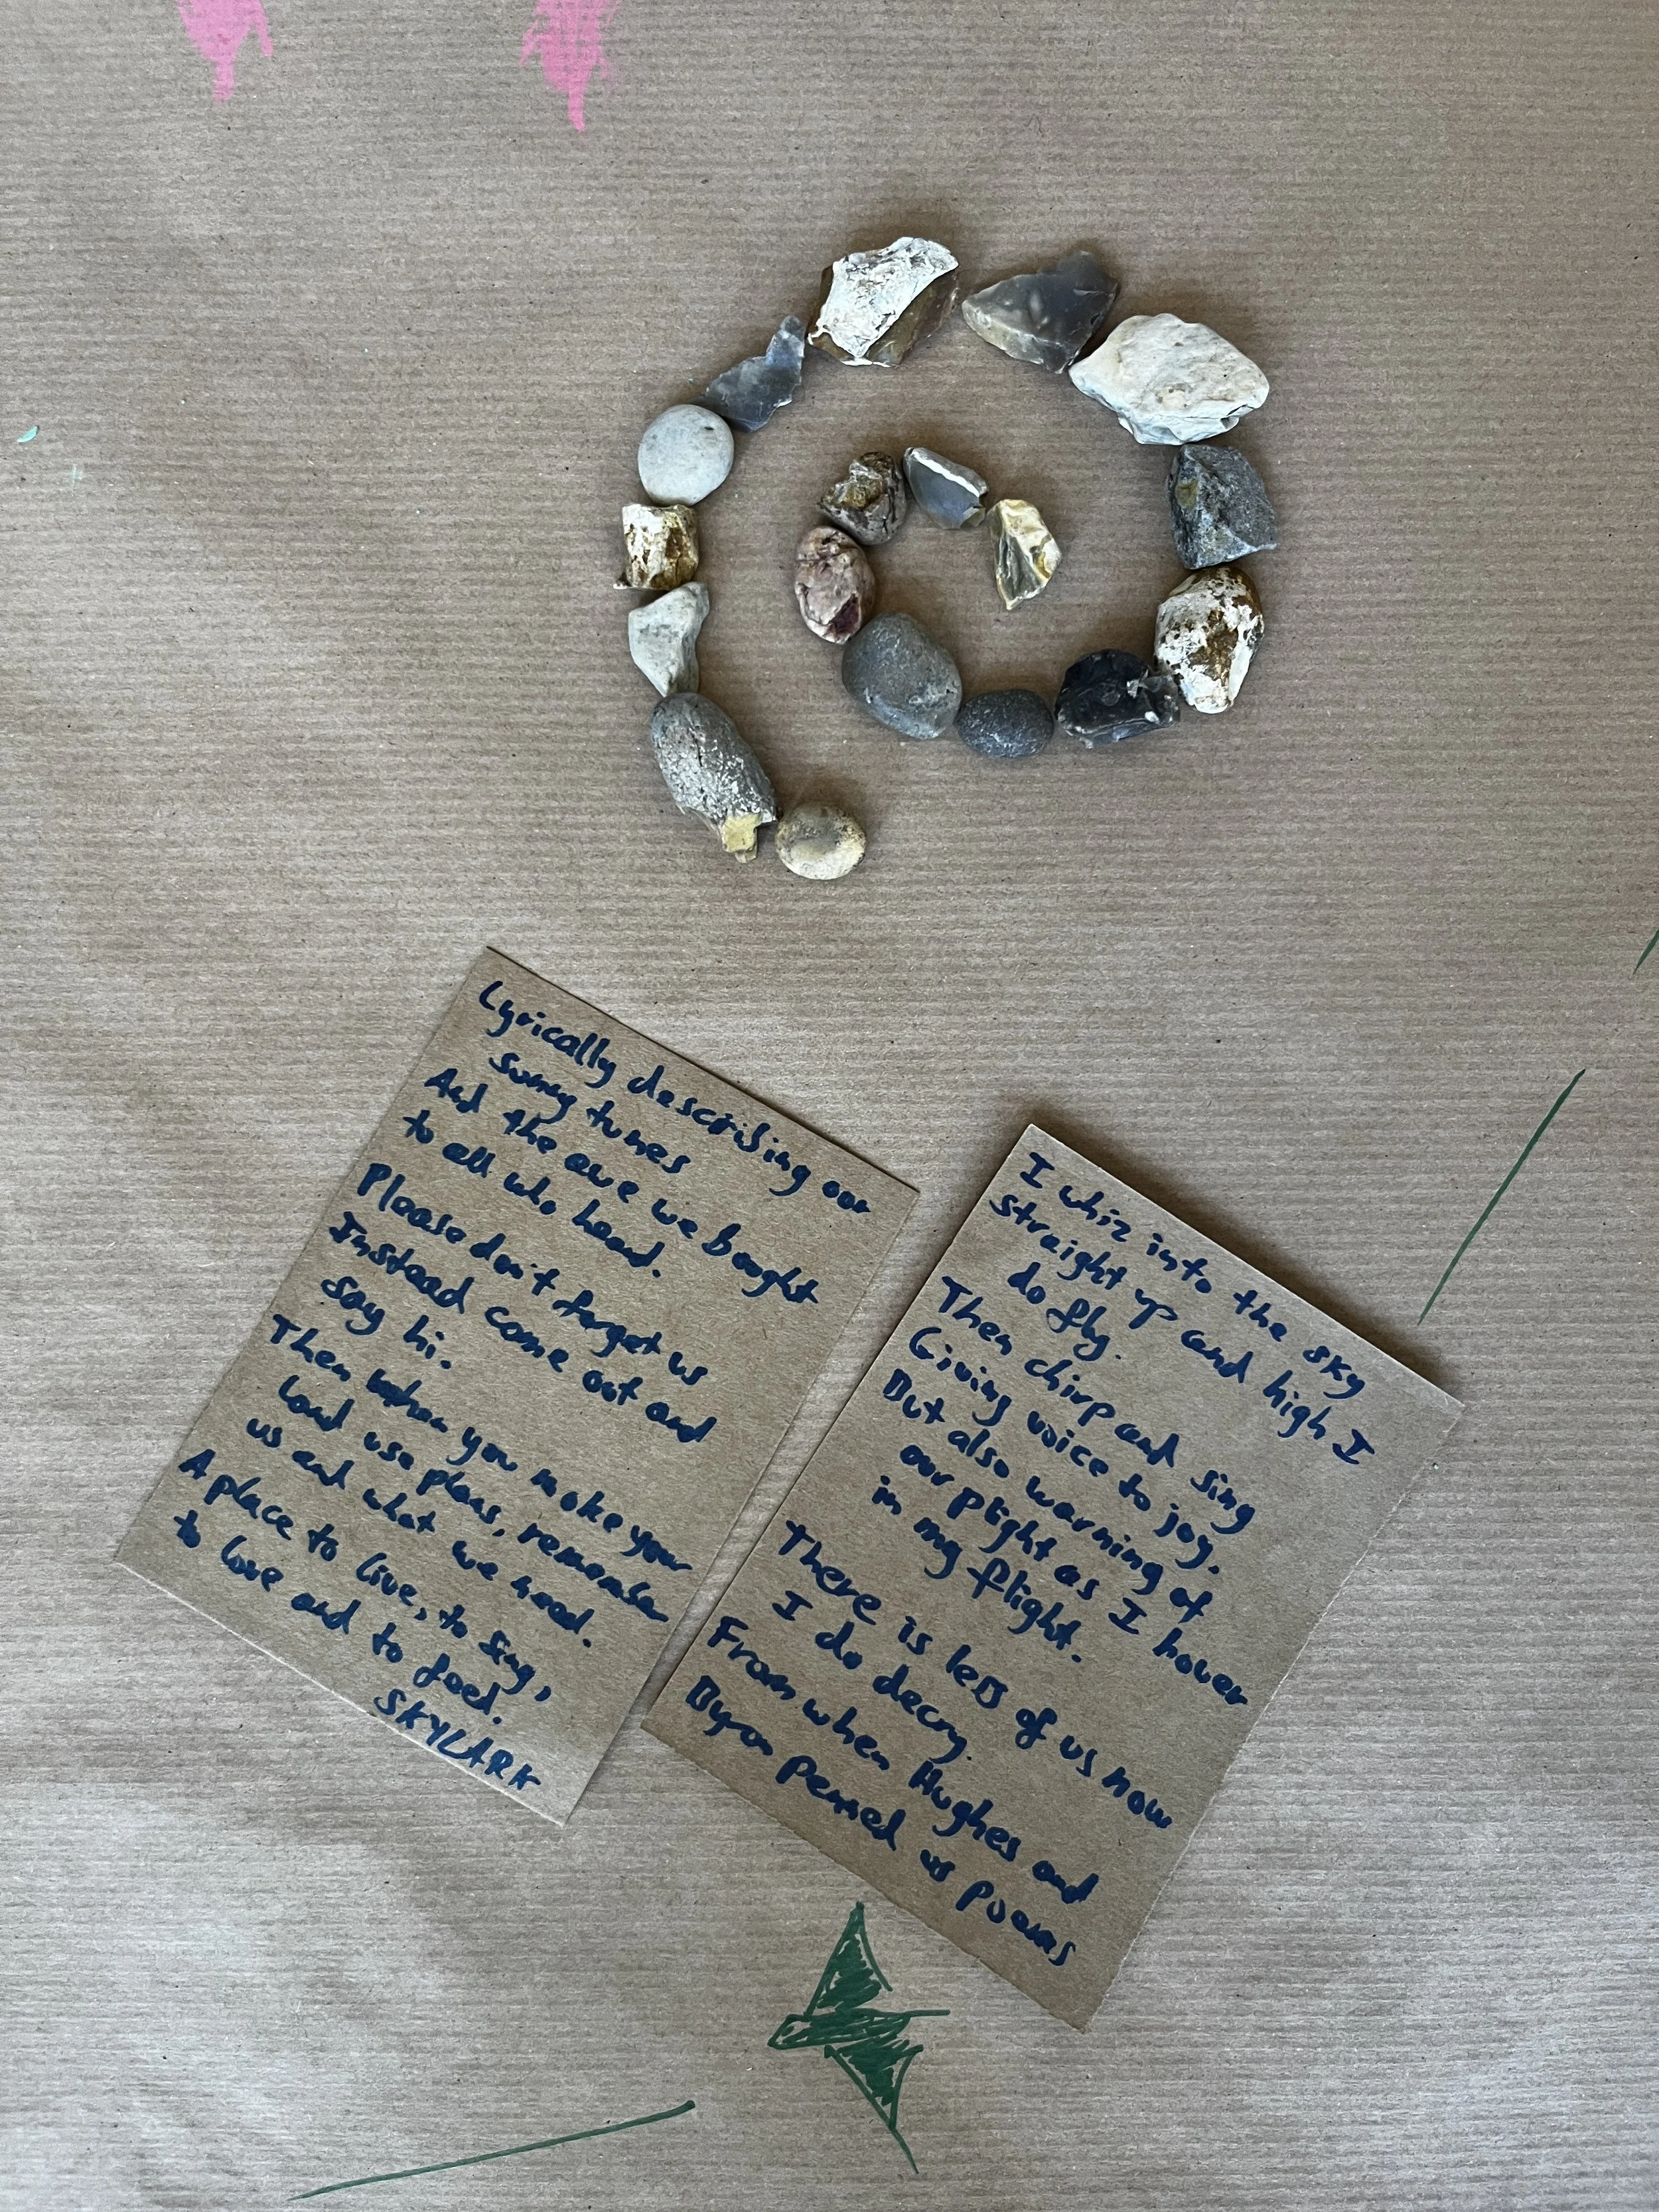 I whiz into the sky
straight up and high I
do fly.
Then chirp and sing
Giving voice to joy.
But also warning of
our plight as I hover
in my flight.
There is less of us now
I do decry.
From when Hughes and
Byron penned us poems
Lyrically describing our
sunny tunes
And the awe we bought
to all who heard.
Please don't forget us
Instead come out and
say hi.
Then when you make your
land use plans, remember
us and what we need.
A place to live, to sing,
to love and to feed.
SKYLARK